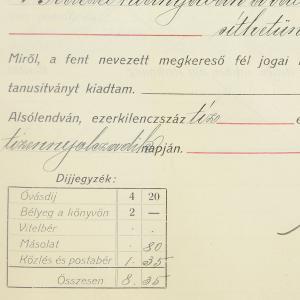 sithetün
Miről, a fent nevezett megkereső fél jogai
tanusitványt kiadtam.
Alsólendván, ezerkilenczszáz tíz
tizennyolczadik napján.
Díjjegyzék:
Óvásdíj 4 20
Bélyeg a könyvön 2 —
Vitelbér . .
Másolat . 80
Közlés és postabér 1. 35
Összesen 8. 35